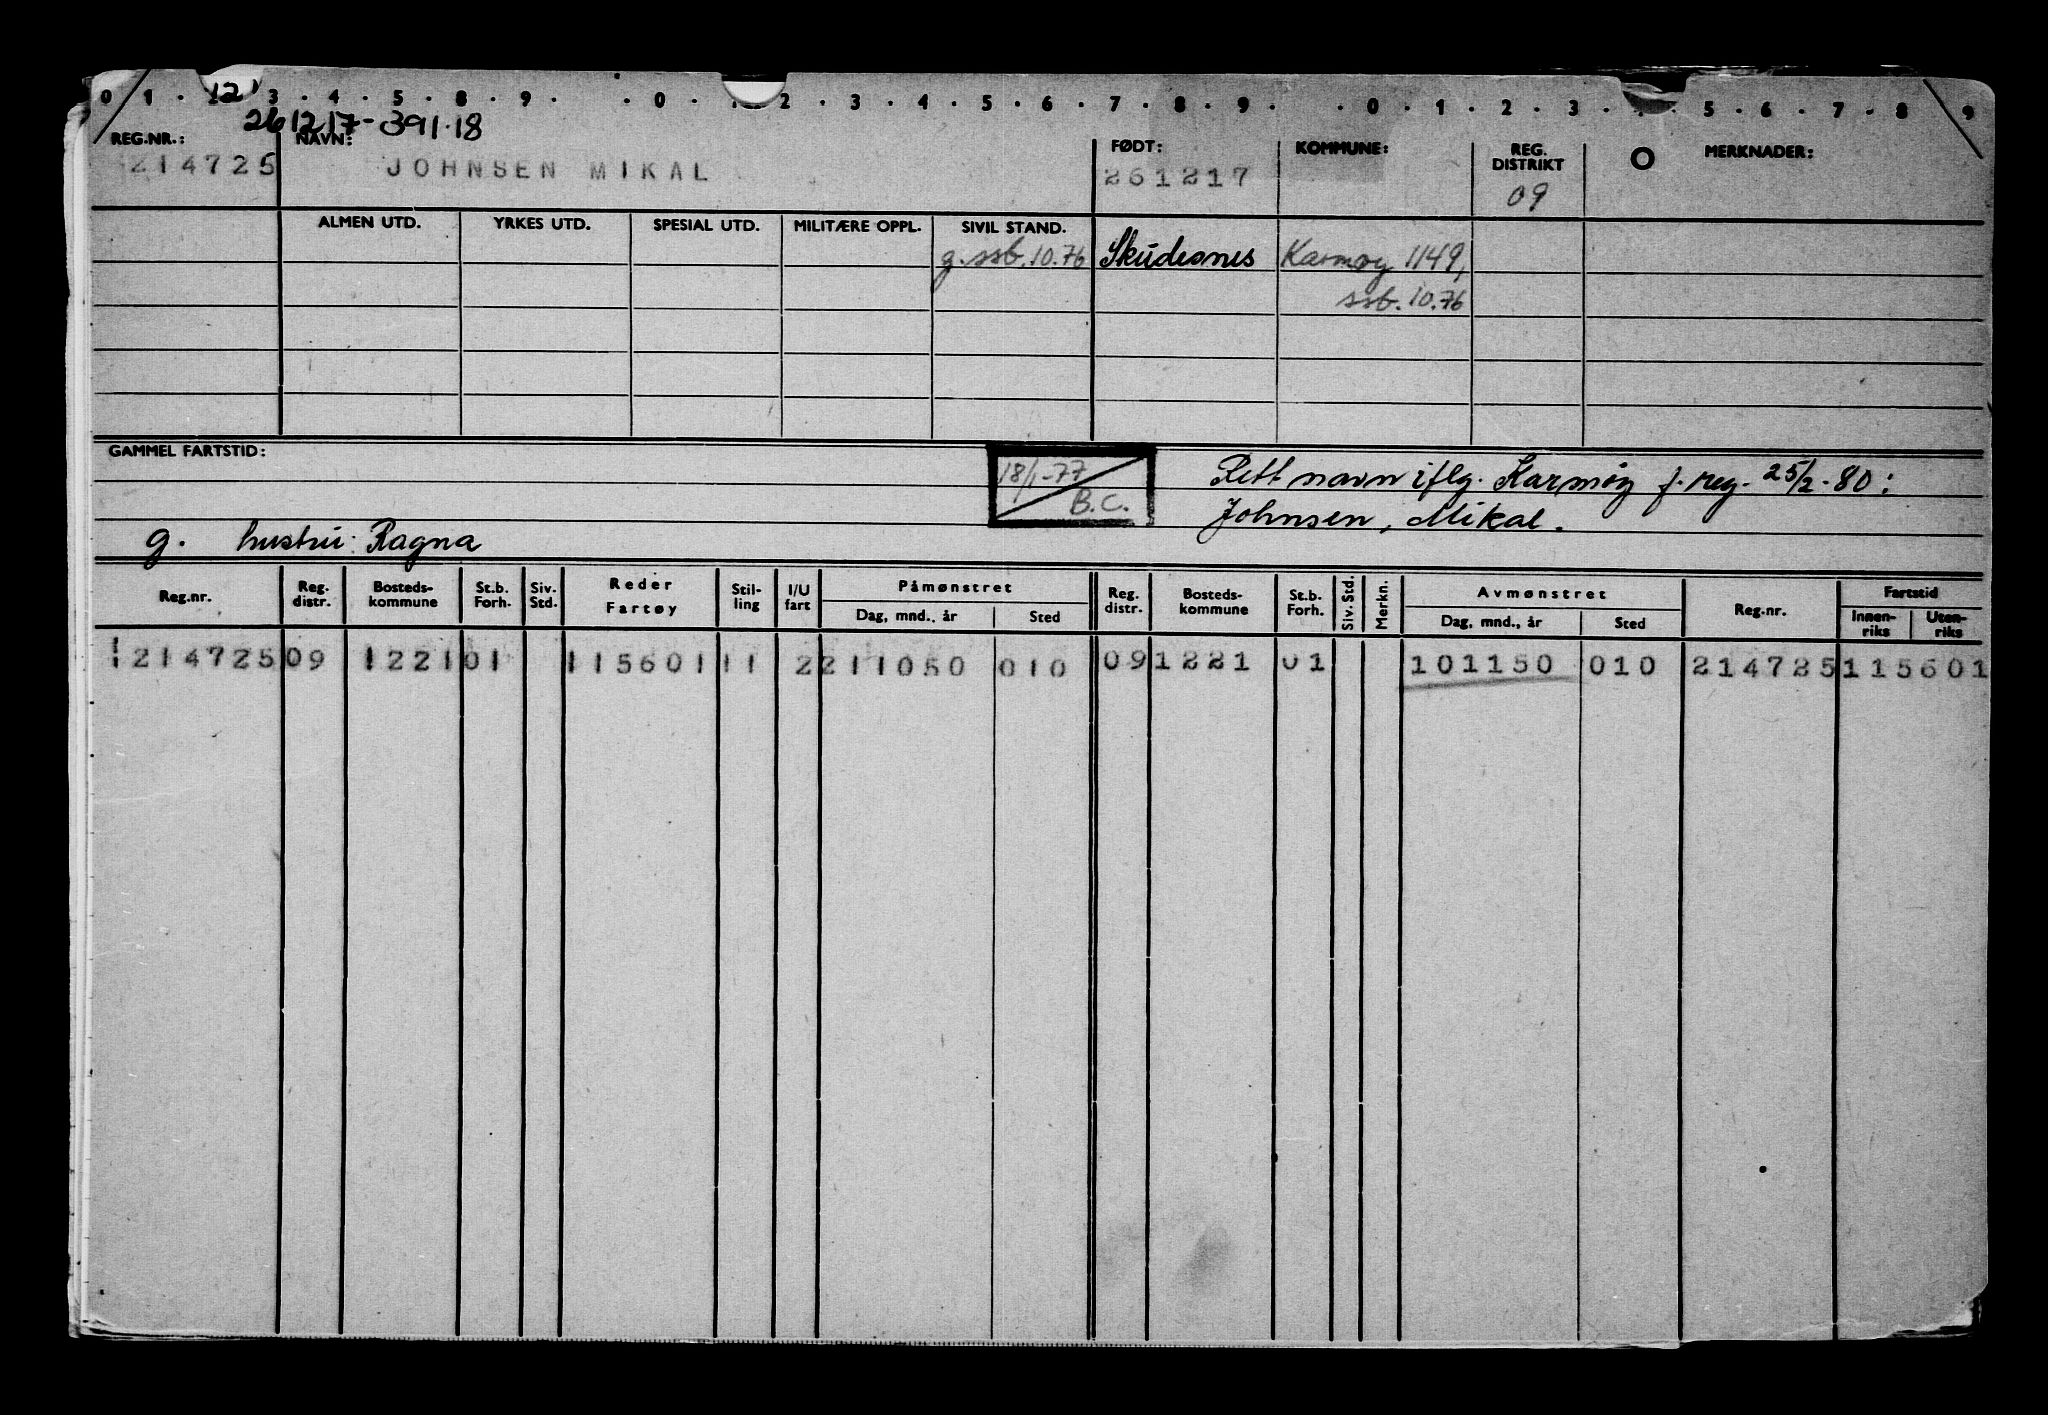 0 1 · 12 3 · 4 · 5 · 8 · 9 · · 0 · 2 · 3 · 4 · 5 · 6 · 7 · 8 · 9 · · 0 · 1 · 2 · 3 · 5 · 6 · 7 · 8 9
261217-391.18
REG.NR.: NAVN: FØDT: KOMMUNE: REG. DISTRIKT O MERKNADER:
214725 JOHNSEN MIKAL 261217 09
ALMEN UTD. YRKES UTD. SPESIAL UTD. MILITÆRE OPPL. SIVIL STAND.
g. ssb. 10.76 Skudesnes Karmøy 1149,
ssb. 10.76
GAMMEL FARTSTID:
18/1-77 B.C.
Rett navn iflg. Karmøy f. reg. 25/2-80:
Johnsen, Mikal.
g. hustru: Ragna
Reg.nr. Reg. distr. Bosteds-kommune St.b. Forh. Siv. Std. Reder Fartøy Stil-ling I/U fart Påmønstret Dag, mnd., år Sted Reg. distr. Bosteds-kommune St.b. Forh. Siv. Std. Merkn. Avmønstret Dag, mnd., år Sted Reg.nr. Fartstid Innen-riks Uten-riks
214725 09 1221 01 115601 11 2 211050 010 09 1221 01 101150 010 214725 115601